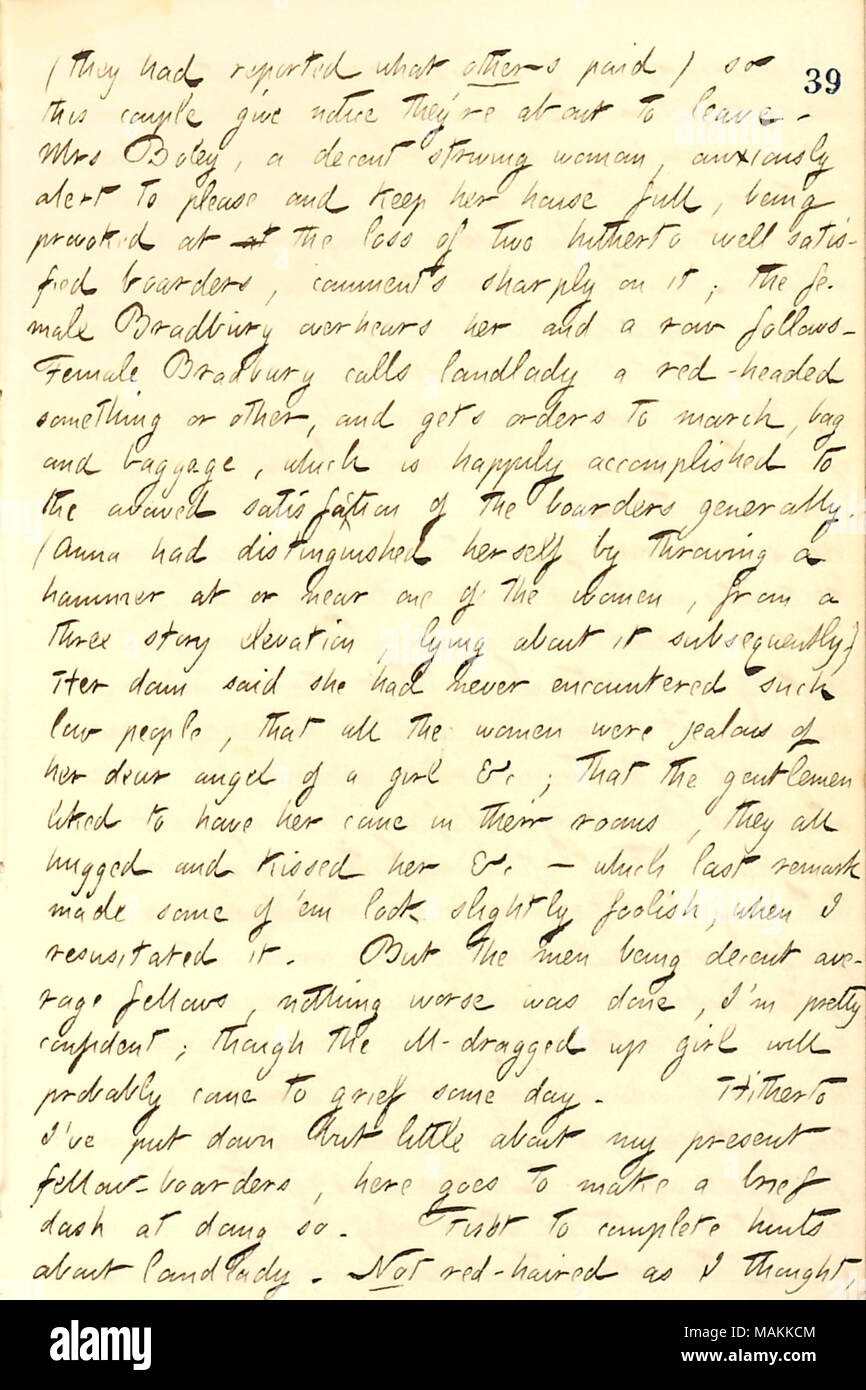 39
(they had reported what others paid) so
this couple give notice they're about to leave.
Mrs Boley, a decent striving woman, anxiously
alert to please and keep her house full, being
provoked at at the loss of two hitherto well satis-
fied boarders, comments sharply on it; the fe-
male Bradbury overhears her and a row follows.
Female Bradbury calls landlady a red-headed
something or other, and gets orders to march, bag
and baggage, which is happily accomplished to
the avowed satisfaction of the boarders generally.
(Anna had distinguished herself by throwing a
hammer at or near one of the women, from a
three story elevation, lying about it subsequently.)
Her dam said she had never encountered such
low people, that all the women were jealous of
her dear angel of a girl &c; that the gentlemen
liked to have her come in their rooms, they all
hugged and kissed her &c — which last remark
made some of 'em look slightly foolish, when I
resusitated it. But the men being decent ave-
rage fellows, nothing worse was done, I'm pretty
confident; though the ill-dragged up girl will
probably come to grief some day. Hitherto
I've put down but little about my present
fellow-boarders, here goes to make a brief
dash at doing so. First to complete hints
about landlady. Not red-haired as I thought,
alamy
Image ID: MAKKCM
www.alamy.com